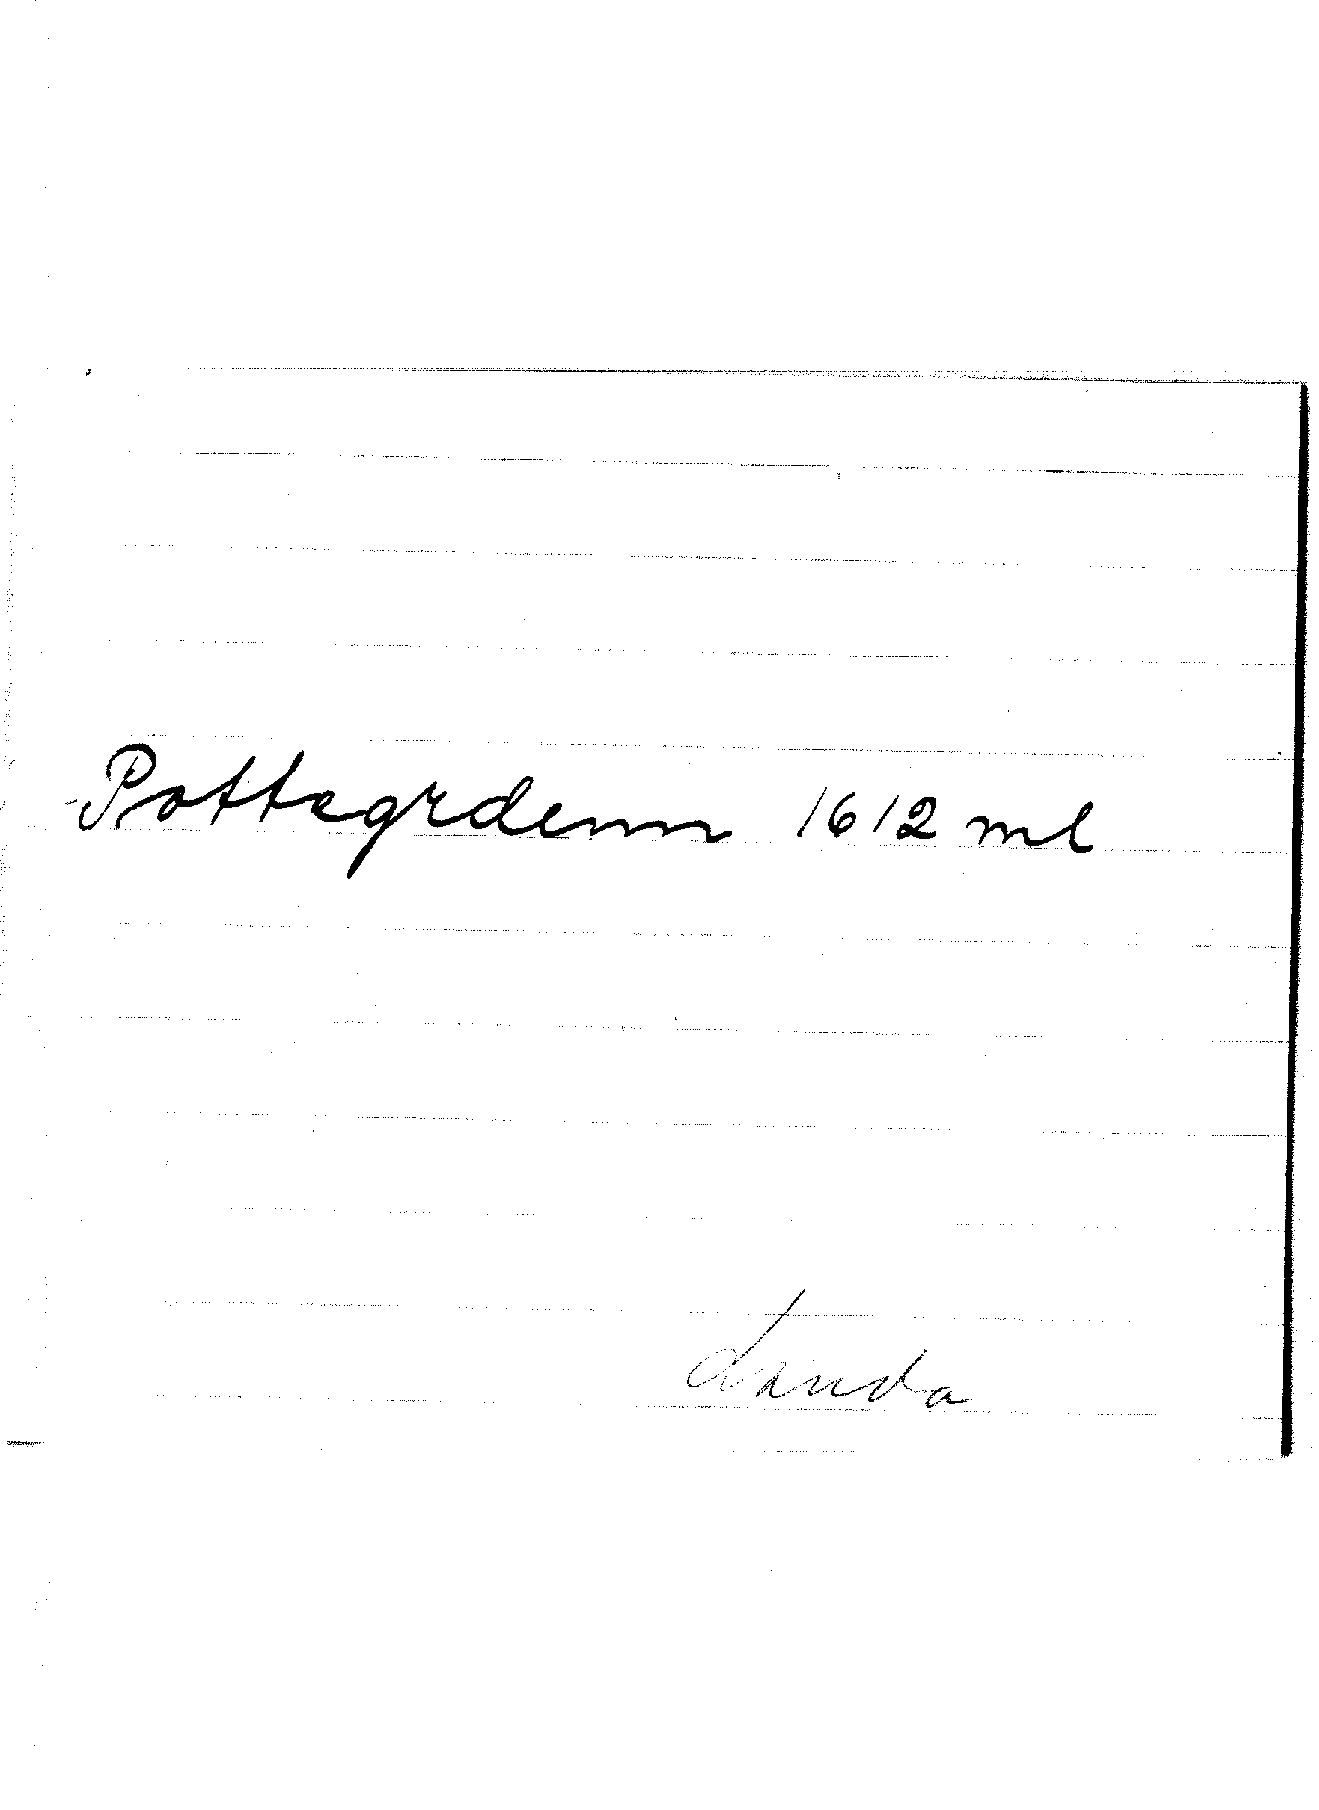 Pottegrdenn 1612 ml
Landa